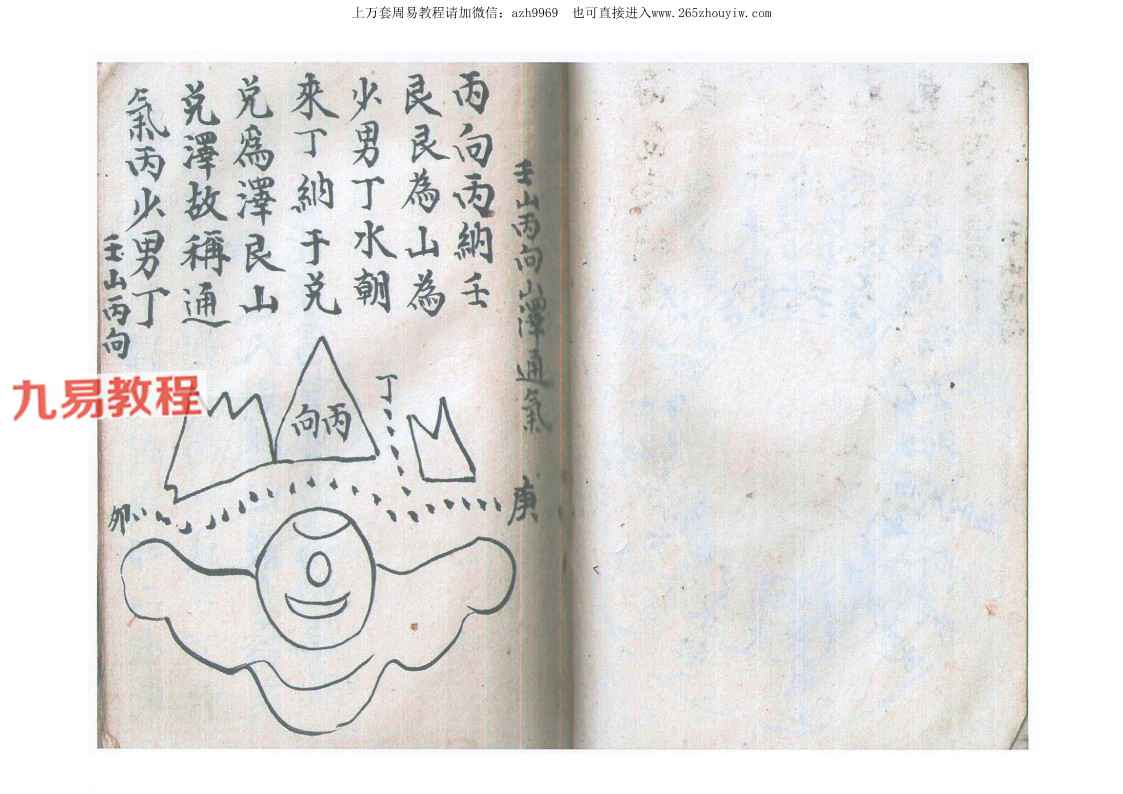 上万套周易教程请加微信：azh9969 也可直接进入www.265zhouyiw.com
壬山丙向山澤通氣
丙向丙納壬
艮艮為山為
少男丁水朝
來丁納于兑
兑為澤艮山
兑澤故稱通
氣丙少男丁
壬山丙向
九易教程
丁
丙向
庚
卯